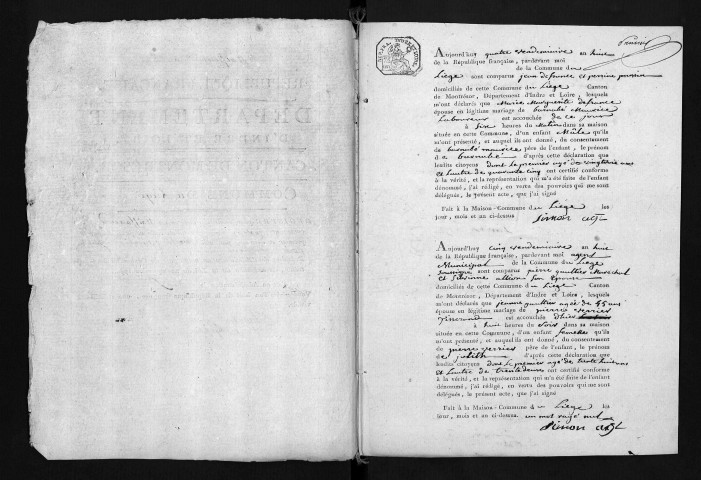 Aujourd'huy quatre vendemiaire an huit
de la République française, pardevant moi
de la Commune du
Liege sont comparus jean defrance et perrine
domiciliés de cette Commune du Liege Canton
de Montrésor, Département d'Indre et Loire, lesquels
m'ont déclarés que Marie Marguerite defrance
épouse en légitime mariage de barnabé Maurice
Laboureur est accouchée de ce jour
à Six heures du Matin dans sa maison
située en cette Commune, d'un enfant Mâle qu'ils
m'ont présenté, et auquel ils ont donné, du consentement
de barnabé maurice père de l'enfant, le prénom
de barnabé d'après cette déclaration que
lesdits citoyens dont le premier agé de ans
et l'autre de quarante cinq ont certifié conforme
à la vérité, et la représentation qui m'a été faite de l'enfant
dénommé, j'ai rédigé, en vertu des pouvoirs qui me sont
délégués, le présent acte, que j'ai signé
Fait à la Maison-Commune du Liege les
jour, mois et an ci-dessus Simon agt
Aujourd'huy cinq vendemiaire an huit
de la République française, pardevant moi agent
Municipal de la Commune du Liege
soussigné sont comparus pierre gaultier Marechal
et Son épouse
domiciliés de cette Commune du Liege Canton
de Montrésor, Département d'Indre et Loire, lesquels
m'ont déclarés que jeanne gaultier agée de 45 ans
épouse en légitime mariage de
est accouchée d'hier
à huit heures du Soir dans sa maison
située en cette Commune, d'un enfant femelle qu'ils
m'ont présenté, et auquel ils ont donné, du consentement
de père de l'enfant, le prénom
de judith d'après cette déclaration que
lesdits citoyens dont le premier agé de trente huit ans
et l'autre de trente deux ont certifié conforme
à la vérité, et la représentation qui m'a été faite de l'enfant
dénommé, j'ai rédigé, en vertu des pouvoirs qui me sont
délégués, le présent acte, que j'ai signé
Fait à la Maison-Commune du Liege les
jour, mois et an ci-dessus. un mot rayé nul
Simon agt